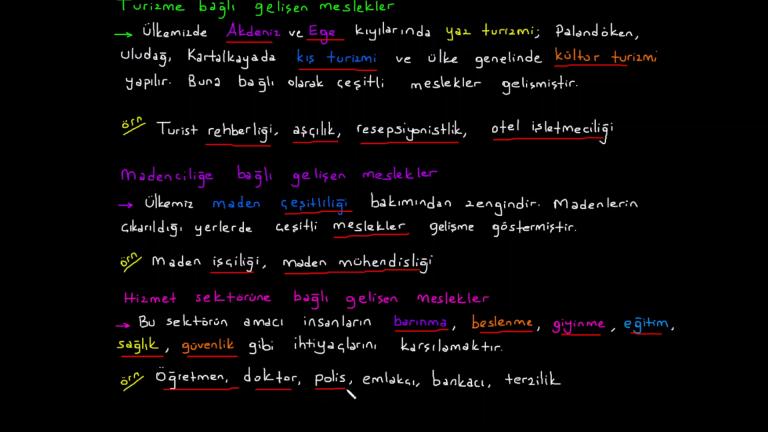 Turizme bağlı gelişen meslekler
→ Ülkemizde Akdeniz ve Ege kıyılarında yaz turizmi, Palandöken,
Uludağ, Kartalkayada kış turizmi ve ülke genelinde kültür turizmi
yapılır. Buna bağlı olarak çeşitli meslekler gelişmiştir.
örn Turist rehberliği, aşçılık, resepsiyonistlik, otel işletmeciliği
Madenciliğe bağlı gelişen meslekler
→ Ülkemiz maden çeşitliliği bakımından zengindir. Madenlerin
çıkarıldığı yerlerde çeşitli meslekler gelişme göstermiştir.
örn Maden işçiliği, maden mühendisliği
Hizmet sektörüne bağlı gelişen meslekler
→ Bu sektörün amacı insanların barınma, beslenme, giyinme, eğitim,
sağlık, güvenlik gibi ihtiyaçlarını karşılamaktır.
örn Öğretmen, doktor, polis, emlakçı, bankacı, terzilik